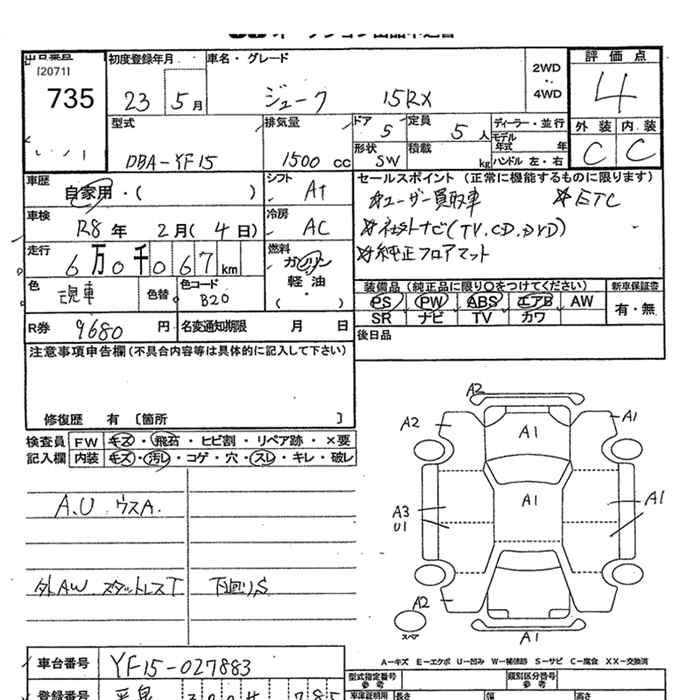 [2071]
735
初度登録年月
23 5月
車名・グレード
ジューク 15RX
2WD
・・
4WD
評価点
4
外装 内装
C C
型式
DBA-YF15
排気量
1500 cc
ドア
5
定員
5人
形状
SW
積載
kg
ディーラー・並行
モデル
年式 年
ハンドル 左・右
車歴
自家用・( )
シフト
At
車検
R8年 2月(4日)
冷房
AC
走行
6万0千067km
燃料
ガソリン
軽油
・
( )
色
色替
色コード
B20
R券 9680円
名変通知期限 月 日
セールスポイント (正常に機能するものに限ります)
☆ユーザー買取車 ☆ETC
☆社外ナビ(TV,CD,DVD)
☆純正フロアマット
装備品(純正品に限り〇をつけてください)
PS PW ABS エアB AW
SR ナビ TV カワ
新車保証書
有・無
後日品
注意事項申告欄(不具合内容等は具体的に記入して下さい)
修復歴 有 〔箇所 〕
検査員
記入欄
FW キズ・飛石・ヒビ割・リペア跡・×要
内装 キズ・汚れ・コゲ・穴・スレ・キレ・破レ
A.U ウスA.
外AW スタットレスT 下回りS
A2
A2 A1 A1
A1
A3
U1
A1
A2
A1
スペア
A-キズ E-エクボ U-凹み W-補修跡 S-サビ C-腐食 XX-交換済
車台番号 YF15-027883
型式指定番号
参考
類別区分番号
参考
登録番号
長さ 幅 高さ